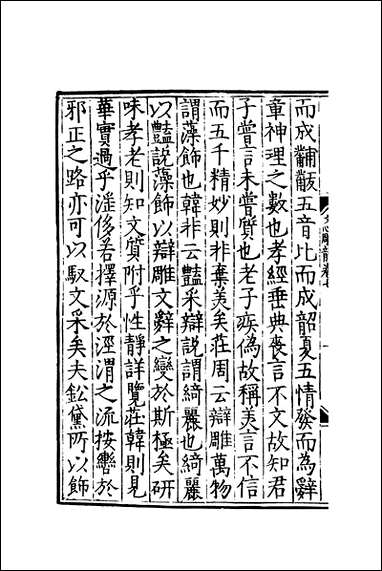 而成黼黻五音比而成韶夏五情發而為辭
章神理之數也孝經垂典喪言不文故知君
子嘗言未嘗質也老子疾偽故稱美言不信
而五千精妙則非棄美矣莊周云辯雕萬物
謂藻飾也韓非云豔采辯說謂綺麗也綺麗
以豔說藻飾以辯雕文辭之變於斯極矣研
味孝老則知文質附乎性情詳覽莊韓則見
華實過乎淫侈若擇源於涇渭之流按轡於
邪正之路亦可以馭文采矣夫鉛黛所以飾